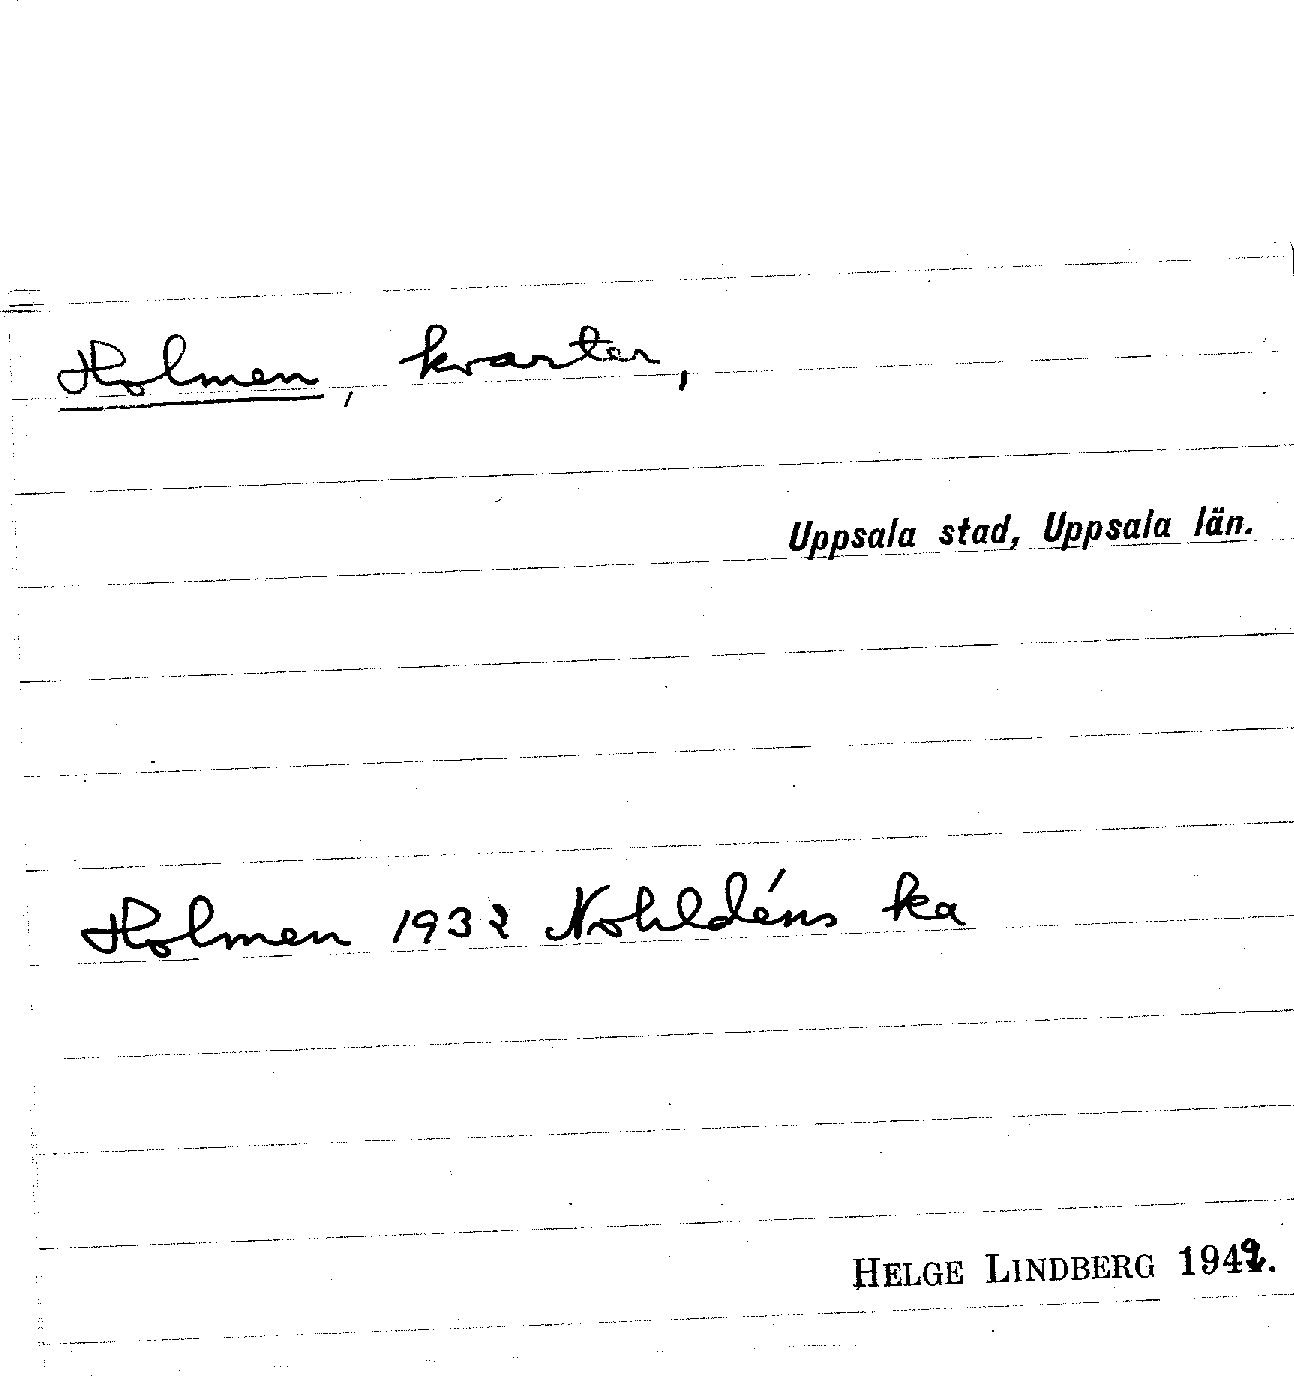 Holmen, kvarter,
Uppsala stad, Uppsala län.
Holmen 1932 Nohldéns ka
HELGE LINDBERG